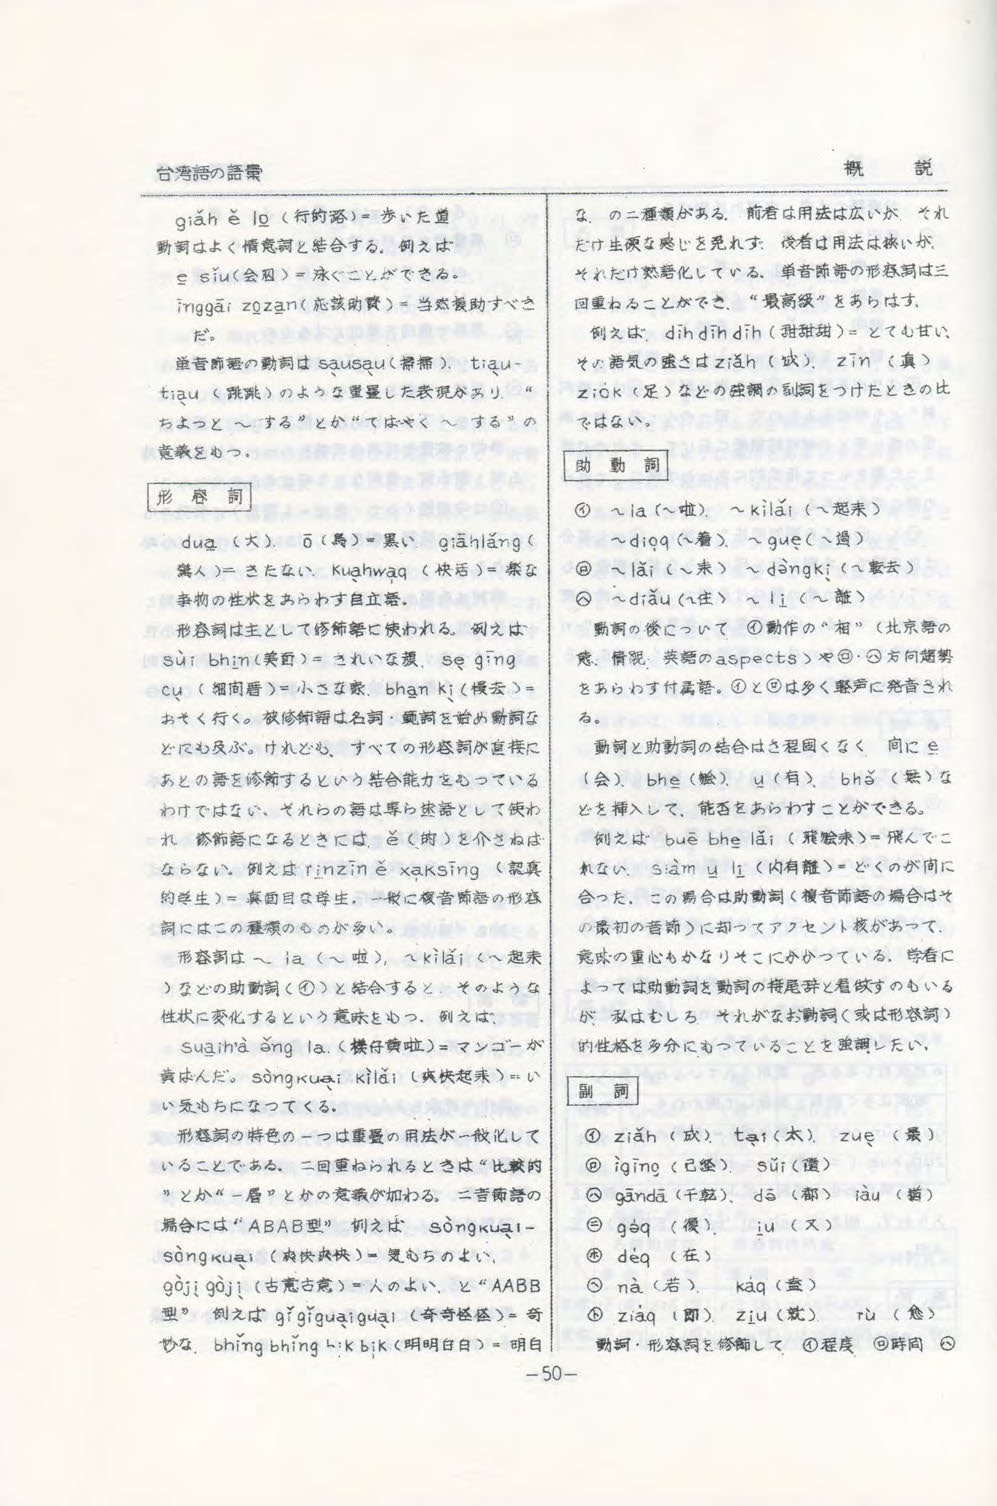 台湾語の語彙
概 説
giǎh ě lo̱ (行的路)= 歩いた道
動詞はよく情意詞と結合する。例えば
e̱ sǐu(会泅)= 泳ぐことができる。
īnggāi zo̱za̱n(応該助賛)= 当然援助すべき
だ。
単音節語の動詞は sa̱usa̱u(掃掃)、tia̱u-
tia̱u (跳跳)のような重畳した表現があり、“
ちよっと 〜 する”とか“てばやく 〜 する”の
意義をもつ。
形 容 詞
dua̱ (大)、 ō(烏)=黒い、 giāhlǎng(
驚人)= きたない、kua̱hwa̱q (快活)=楽な
事物の性状をあらわす自立語。
形容詞は主として修飾語に使われる。例えば
sùi bhi̱n(美面)= きれいな顔、se̱ gīng
cu̱ (細間厝)=小さな家、bha̱n ki̱(慢去)=
おそく行く。被修飾語は名詞・範詞を始め動詞な
どにも及ぶ。けれども、すべての形容詞が直接に
あとの語を修飾するという結合能力をもつている
わけではない、それらの語は専ら述語として使わ
れ 修飾語になるときには、ě(的)を介さねば
ならない。例えば ri̱nzīn ě xa̱ksīng (認真
的学生)= 真面目な学生。一般に複音節語の形容
詞にはこの種類のものが多い。
形容詞は 〜 la (〜 啦)、〜kìlǎi (〜 起来
)などの助動詞(㋑)と結合すると、そのような
性状に変化するという意味をもつ。例えば、
sua̱ih'à ǒng la、(檨仔黄啦)= マンゴーが
黄ばんだ。sòngkua̱i kìlǎi (爽快起来)= い
い気もちになつてくる。
形容詞の特色の一つは重畳の用法が一般化して
いることである。 二回重ねられるときは“比較的
”とか“一層”とかの意義が加わる。二音節語の
場合には“ABAB型” 例えば sòngkua̱i-
sòngkua̱i (爽快爽快)= 気もちのよい、
gòji̱ gòji̱ (古意古意)=人のよい、と“AABB
型” 例えば gǐgǐgua̱igua̱i (奇奇怪怪)= 奇
妙な、bhǐng bhǐng bi̱k bi̱k(明明白白)= 明白
な、の二種類がある。前者は用法は広いが それ
だけ生硬な感じを免れず、後者は用法は狭いが、
それだけ熟語化している。単音節語の形容詞は三
回重ねることができ、“最高級”をあらはす。
例えば、dīh dīh dīh(甜甜甜)= とても甘い、
その語気の強さは ziǎh (成)、 zīn (真)
ziok (足)などの強調の副詞をつけたときの比
ではない。
助 動 詞
㋑ 〜la (〜啦)、 〜kìlǎi (〜起来)
〜dioq(〜着)、 〜gue̱(〜過)
㋺ 〜lǎi (〜来) 〜dàngki̱ (〜転去)
㋩ 〜diǎu (〜住) 〜li̱ (〜離)
動詞の後について ㋑動作の“相”(北京語の
態、情貌、英語のaspects)や㋺・㋩方向趨勢
をあらわす付属語。㋑と㋺は多く軽声に発音され
る。
動詞と助動詞の結合はさ程固くなく 間に e̱
(会)、bhe̱ (𣍐)、u̱ (有)、bhǒ (無)な
どを挿入して、能否をあらわすことができる。
例えば buē bhe̱ lǎi (飛𣍐来)= 飛んでこ
れない、siàm u̱ li̱ (閃有離)= どくのが間に
合った、この場合は助動詞(複音節語の場合はそ
の最初の音節)に却ってアクセント核があって、
意味の重心もかなりそこにかかっている。学者に
よっては助動詞を動詞の接尾辞と看做すのもいる
が、私はむしろ それがなお動詞(或は形容詞)
的性格を多分にもっていることを強調したい。
副 詞
㋑ ziǎh (成)、 ta̱i(太)、 zue̱ (最)
㋺ ìgīng (已経)、 sǔi(随)
㋩ gāndā(干乾)、 dō (都) iàu (猶)
㋥ gəq (復)、 i̱u (又)
㋭ deq (在)
㋬ nà (若)、 kaq (盍)
㋣ ziaq (即)、 zi̱u (就)、 rù (愈)
動詞・形容詞を修飾して、㋑程度 ㋺時間 ㋩
—50—